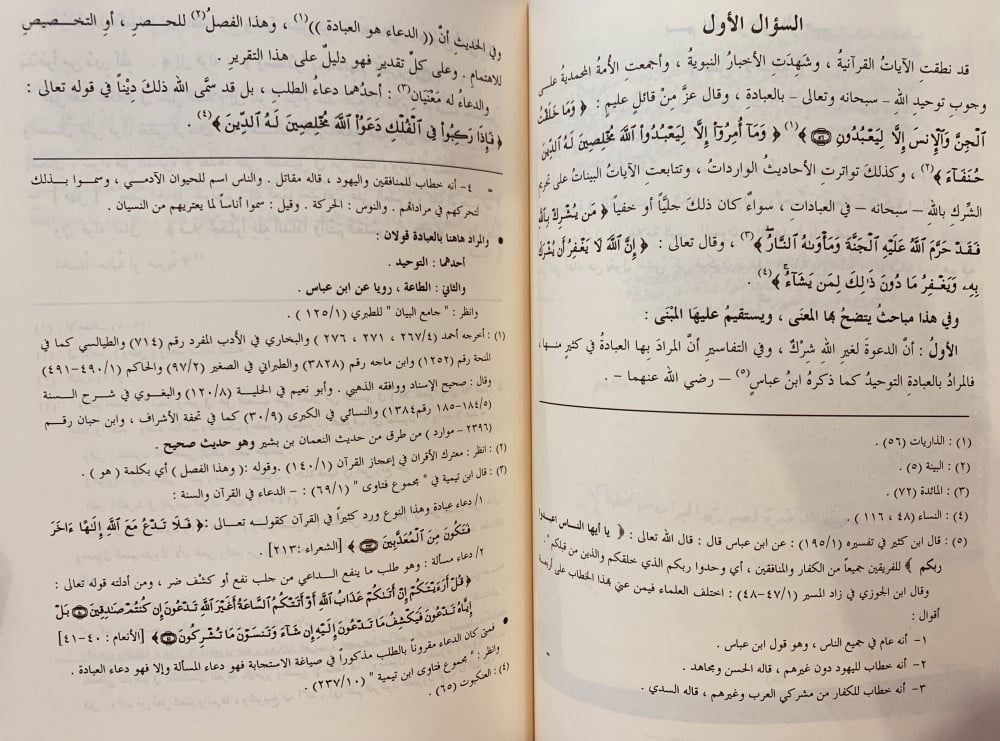 السؤال الأول
قد نطقت الآياتُ القرآنيةُ ، وشَهِدَتِ الأخبارُ النبويةُ ، وأجمعتِ الأمةُ المحمديةُ على
وجوبِ توحيدِ الله – سبحانه وتعالى – بالعبادة ، وقال عزَّ مِنْ قائلٍ عليمٍ : ﴿ وَمَا خَلَقْتُ
ٱلْجِنَّ وَٱلْإِنسَ إِلَّا لِيَعْبُدُونِ ۝ ﴾(١) ﴿ وَمَآ أُمِرُوٓا۟ إِلَّا لِيَعْبُدُوا۟ ٱللَّهَ مُخْلِصِينَ لَهُ ٱلدِّينَ
حُنَفَآءَ ﴾(٢) ، وكذلكَ تواترتِ الأحاديثُ الوارداتُ ، وتتابعتِ الآياتُ البيناتُ على تحريمِ
الشِّركِ بالله – سبحانه – في العبادات ، سواءٌ كان ذلكَ جليّاً أو خفياً ﴿ مَن يُشْرِكْ بِٱللَّهِ
فَقَدْ حَرَّمَ ٱللَّهُ عَلَيْهِ ٱلْجَنَّةَ وَمَأْوَىٰهُ ٱلنَّارُ ﴾(٣) ، وقال تعالى : ﴿ إِنَّ ٱللَّهَ لَا يَغْفِرُ أَن يُشْرَكَ
بِهِۦ وَيَغْفِرُ مَا دُونَ ذَٰلِكَ لِمَن يَشَآءُ ﴾(٤) .
وفي هذا مباحثُ يتضحُ بها المعنى ، ويستقيمُ عليها المَبْنَى :
الأولُ : أنَّ الدعوةَ لغيرِ اللهِ شِرْكٌ ، وفي التفاسيرِ أنَّ المرادَ بها العبادةُ في كثيرٍ منها ،
فالمرادُ بالعبادةِ التوحيدُ كما ذكرهُ ابنُ عباسٍ(٥) – رضي الله عنهما – .
(١) : الذاريات (٥٦) .
(٢) : البينة (٥) .
(٣) : المائدة (٧٢) .
(٤) : النساء (٤٨ ، ١١٦ ) .
(٥) : قال ابن كثير في تفسيره (١٩٥/١) : عن ابن عباس قال : قال الله تعالى : ﴿ يا أيها الناس اعبدوا
ربكم ﴾ للفريقين جميعاً من الكفار والمنافقين ، أي وحدوا ربكم الذي خلقكم والذين من قبلكم".
وقال ابن الجوزي في زاد المسير (٤٧/١-٤٨) : اختلف العلماء فيمن عني بهذا الخطاب على أربعة
أقوال :
١- أنه عام في جميع الناس ، وهو قول ابن عباس .
٢- أنه خطاب لليهود دون غيرهم ، قاله الحسن ومجاهد .
٣- أنه خطاب للكفار من مشركي العرب وغيرهم ، قاله السدي .
وفي الحديث إنَّ (( الدعاء هو العبادة ))(١) ، وهذا الفصلُ(٢) للحصرِ ، أوِ التخصيصِ
للاهتمامِ . وعلى كلِّ تقديرٍ فهو دليلٌ على هذا التقريرِ .
والدعاءُ له مَعْنَيَان(٣) : أحدُهما دعاءُ الطلبِ ، بل قد سمَّى الله ذلكَ دِيْناً في قوله تعالى :
﴿ فَإِذَا رَكِبُوا۟ فِى ٱلْفُلْكِ دَعَوُا۟ ٱللَّهَ مُخْلِصِينَ لَهُ ٱلدِّينَ ﴾(٤).
= ٤- أنه خطاب للمنافقين واليهود ، قاله مقاتل . والناس اسم للحيوان الآدمي ، وسموا بذلك
لتحركهم في مراداتهم . والنوس : الحركة . وقيل : سموا أناساً لما يعتريهم من النسيان .
• والمراد هاهنا بالعبادة قولان :
أحدهما : التوحيد .
والثاني : الطاعة ، رويا عن ابن عباس .
وانظر : " جامع البيان " للطبري (١٢٥/١ ) .
(١) : أخرجه أحمد (٢٦٧/٤ ، ٢٧١ ، ٢٧٦ ) والبخاري في الأدب المفرد رقم (٧١٤) والطيالسي كما في
المنحة رقم (١٢٥٢) وابن ماجه رقم (٣٨٢٨) والطبراني في الصغير (٩٧/٢) والحاكم (٤٩٠/١-٤٩١)
وقال : صحيح الإسناد ووافقه الذهبي . وأبو نعيم في الحلية (١٢٠/٨) والبغوي في شرح السنة
(١٨٤/٥-١٨٥ رقم١٣٨٤) والنسائي في الكبرى (٣٠/٩) كما في تحفة الأشراف ، وابن حبان رقم
(٢٣٩٦ – موارد ) من طرق من حديث النعمان بن بشير وهو حديث صحيح .
(٢) : انظر : معترك الأقران في إعجاز القرآن (١٤٠/١) .وقوله :( وهذا الفصل ) أي بكلمة ( هو ) .
(٣) : قال ابن تيمية في " مجموع فتاوى " (٦٩/١) : – الدعاء في القرآن والسنة :
١/ دعاء عبادة وهذا النوع ورد كثيراً في القرآن كقوله تعالى :﴿ فَلَا تَدْعُ مَعَ ٱللَّهِ إِلَـٰهًا ءَاخَرَ
فَتَكُونَ مِنَ ٱلْمُعَذَّبِينَ ۝ ﴾ [الشعراء :٢١٣] .
٢/ دعاء مسألة : وهو طلب ما ينفع الداعي من جلب نفع أو كشف ضر ، ومن أدلته قوله تعالى :
﴿ قُلْ أَرَءَيْتَكُمْ إِنْ أَتَىٰكُمْ عَذَابُ ٱللَّهِ أَوْ أَتَتْكُمُ ٱلسَّاعَةُ أَغَيْرَ ٱللَّهِ تَدْعُونَ إِن كُنتُمْ صَـٰدِقِينَ ۝ بَلْ
إِيَّاهُ تَدْعُونَ فَيَكْشِفُ مَا تَدْعُونَ إِلَيْهِ إِن شَآءَ وَتَنسَوْنَ مَا تُشْرِكُونَ ۝ ﴾ [الأنعام : ٤٠-٤١]
• فمتى كان الدعاء مقروناً بالطلب مذكوراً في صياغة الاستجابة فهو دعاء المسألة وإلا فهو دعاء العبادة .
وانظر : " مجموع فتاوى ابن تيمية " (٢٣٧/١٠) .
(٤) : العنكبوت (٦٥) .